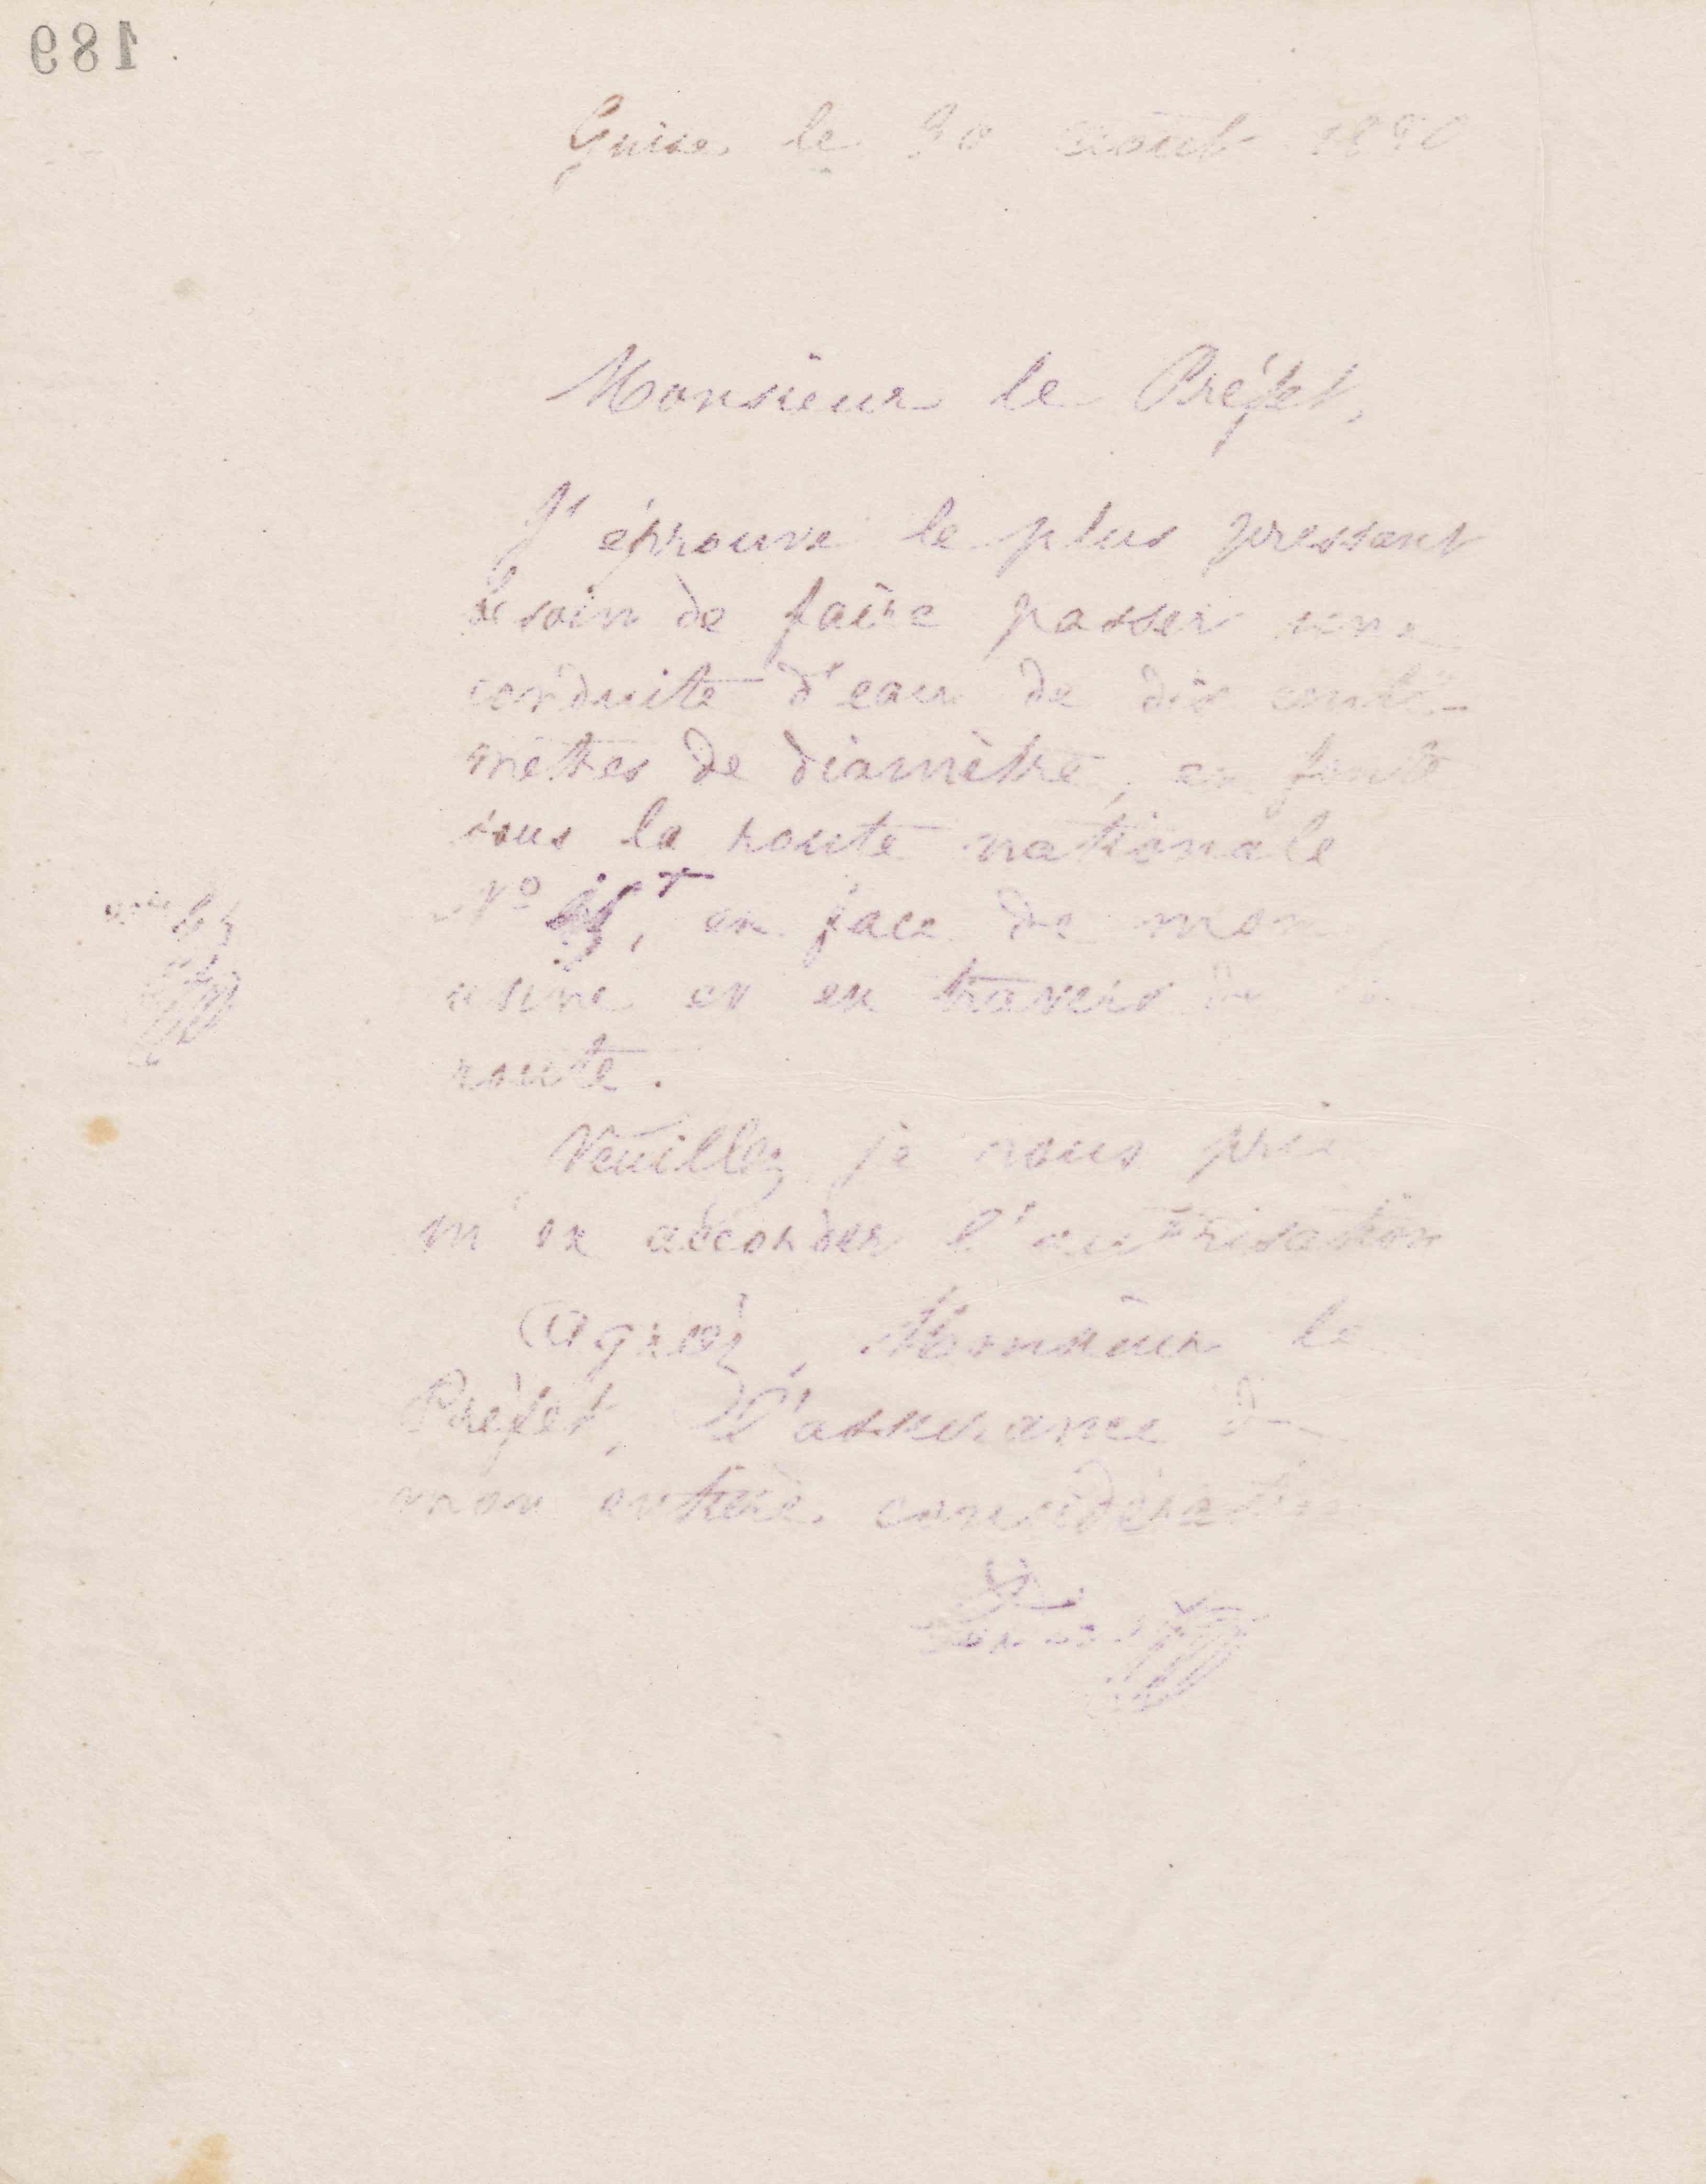 189
Guise le 30 août 1880
Monsieur le Préfet,
J'éprouve le plus pressant
besoin de faire passer une
conduite d'eau de dix centi-
mètres de diamètre, en fonte
sous la route nationale
N°, en face de mon
usine et en travers de la
route.
Veuillez je vous prie
m'en accorder l'autorisation
Agréez, Monsieur le
Préfet, l'assurance de
mon entière considération
Godin